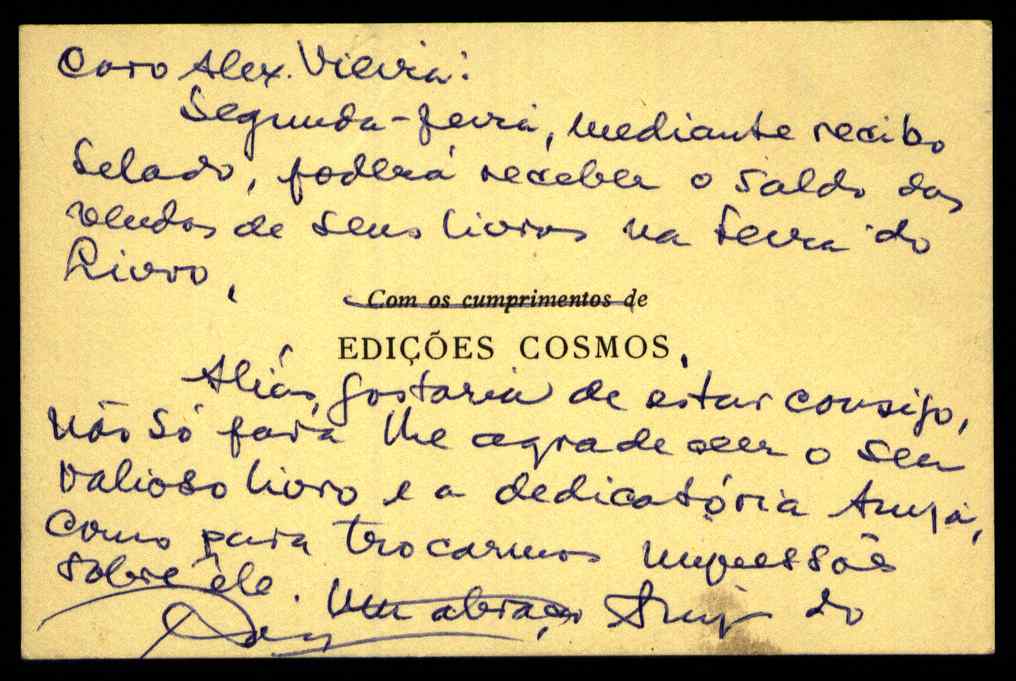 Caro Alex. Vieira:
Segunda-feira, mediante recibo
selado, poderá receber o saldo das
vendas de seus livros na Feira do
Livro.
Com os cumprimentos de
EDIÇÕES COSMOS
Aliás, gostaria de estar consigo,
não só para lhe agradecer o seu
valioso livro e a dedicatória amiga,
como para trocarmos impressões
sobre êle. Um abraço amigo do